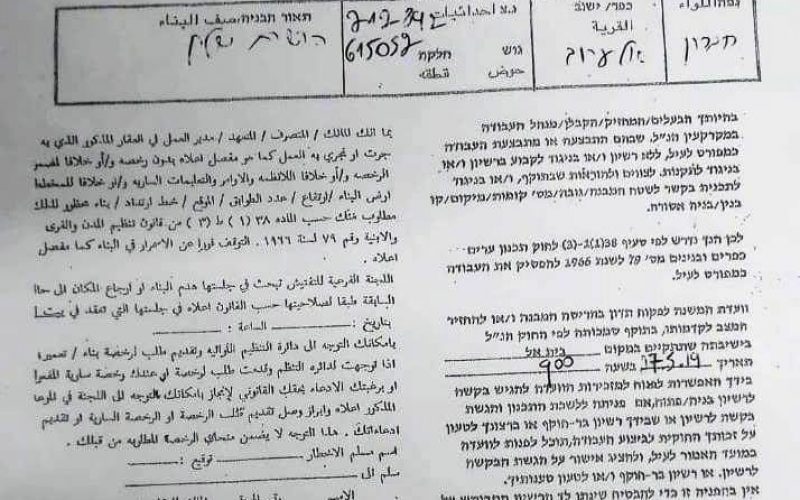 נפת/اللواء
חברון
כפר/ישוב
القرية
אל ערוב
נ.צ احداثيات
גוש
חלקה 615052
حوض
قطعة
תאור הבניה/صف البناء
בהיותך הבעלים/המחזיק/הקבלן/מנהל העבודה
במקרקעין הנ"ל, שבהם התבצעה או מתבצעת העבודה
כמפורט לעיל, ללא רשיון ו/או בניגוד לקבוע ברשיון ו/או
בניגוד לתקנות, לצווים ולהוראות שבתוקף, ו/או בניגוד
לתכנית בקשר לשטח המבנה/גובה/מס' קומות/מיקום/קו
בנין/בניה אסורה.
לכן הנך נדרש לפי סעיף 38(1)-(3) לחוק תכנון ערים
כפרים ובניינים מס' 79 לשנת 1966 להפסיק את העבודה
כמפורט לעיל.
וועדת המשנה לפקוח תדון בהריסת המבנה ו/או להחזיר
המצב לקדמותו, בתוקף סמכותה לפי החוק הנ"ל
בישיבתה שתתקיים במקום בית אל
תאריך 17.5.19 בשעה 900
בידך האפשרות לפנות למזכירות הוועדה להגיש בקשה
לרשיון בניה/פתוח, אם פניתה ללשכת התכנון והגשת
בקשה לרשיון או שבידך רשיון בר-תוקף או ברצונך לטעון
על זכותך החוקית לביצוע העבודה, תוכל לפנות לוועדה
במועד האמור לעיל, ולהציג אישור על הגשת הבקשה
לרשיון, או רשיון בר-תוקף ו/או לטעון טענותיך.
אין בהפניה זו כדי להבטיח שינתן לך הרשיון המבוקש על
بما انك المالك / المتصرف / المتعهد / مدير العمل في العقار المذكور الذي به
جرت او تجري به العمل كما هو مفصل اعلاه بدون رخصه و/أو خلافا
الرخصه و/أو خلافا للانظمه والاوامر والتعليمات الساريه و/أو خلافا للمخطط
ارض البناء /ارتفاع / عدد الطوابق / الموقع / خط ارتداد / بناء محظور لذلك
مطلوب منك حسب الماده ٣٨ (١) ط (٣) من قانون تنظيم المدن والقرى
والابنية رقم ٧٩ لسنة ١٩٦٦ . التوقف فورا عن الاستمرار في البناء كما مفصل
اعلاه .
اللجنه الفرعيه للتفتيش تبحث في جلستها هدم البناء او ارجاع المكان الى
السابقة طبقا لصلاحيتها حسب القانون اعلاه في جلستها التي تعقد في
بتاريخ : الساعة :
بامكانك التوجه الى دائرة التنظيم وتقديم طلب لرخصة بناء /
اذا توجهت لدائره التنظيم وقدمت طلب لرخصة او عندك رخصة سارية المفعول
او برغبتك الادعاء بحقك القانوني لإنجاز بامكانك التوجه الى اللجنة في
المذكور اعلاه وابراز وصل تقديم طلب الرخصة او الرخصة السارية او تقديم
ادعاءاتك . هذا التوجه لا يضمن منحاي الرخصة المطلوبه من قبلك .
اسم مسلم الاخطار : توقيع :
سلم الى
الاسم